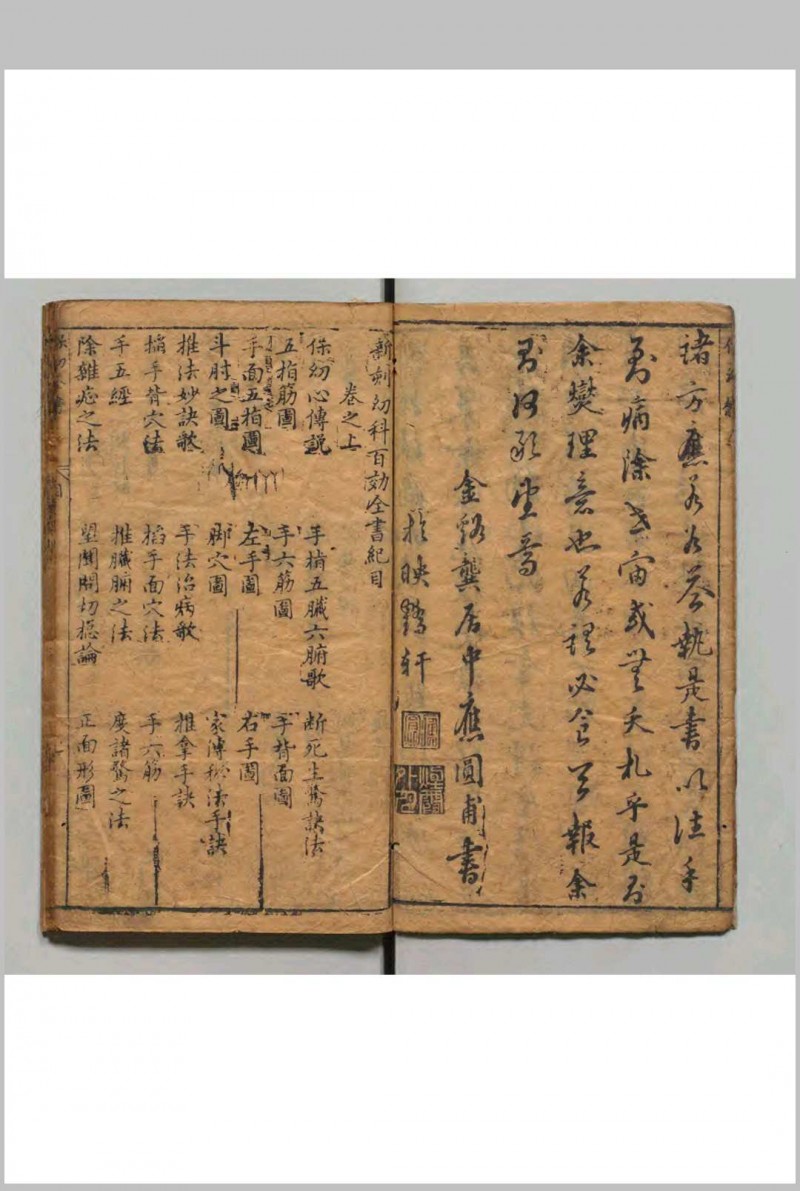 諸方應若谷荅執是書以往手
到病除世宙或無夭札乎是則
余爕理意也若謂必食其報余
則何敢望焉
金谿龔居中應圓甫書
於映鶴軒
新刻幼科百効全書紀目
卷之上
保幼心傳說 手指五臟六腑歌 斷死生驚訣法
五指筋圖 手六筋圖 手背面圖
手面五指圖 左手圖 右手圖
斗肘之圖 脚穴圖 家傳秘法手訣
推法妙訣歌 手法治病歌 推拿手訣
搯手背穴法 搯手面穴法 手六筋
手五經 推臟腑之法 度諸驚之法
除雜症之法 望聞問切總論 正面形圖